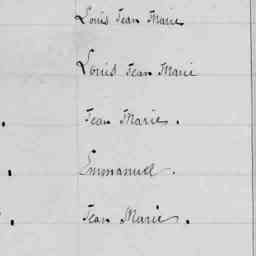 Louis Jean Marie
Louis Jean Marie
Jean Marie.
Emmanuel.
Jean Marie.